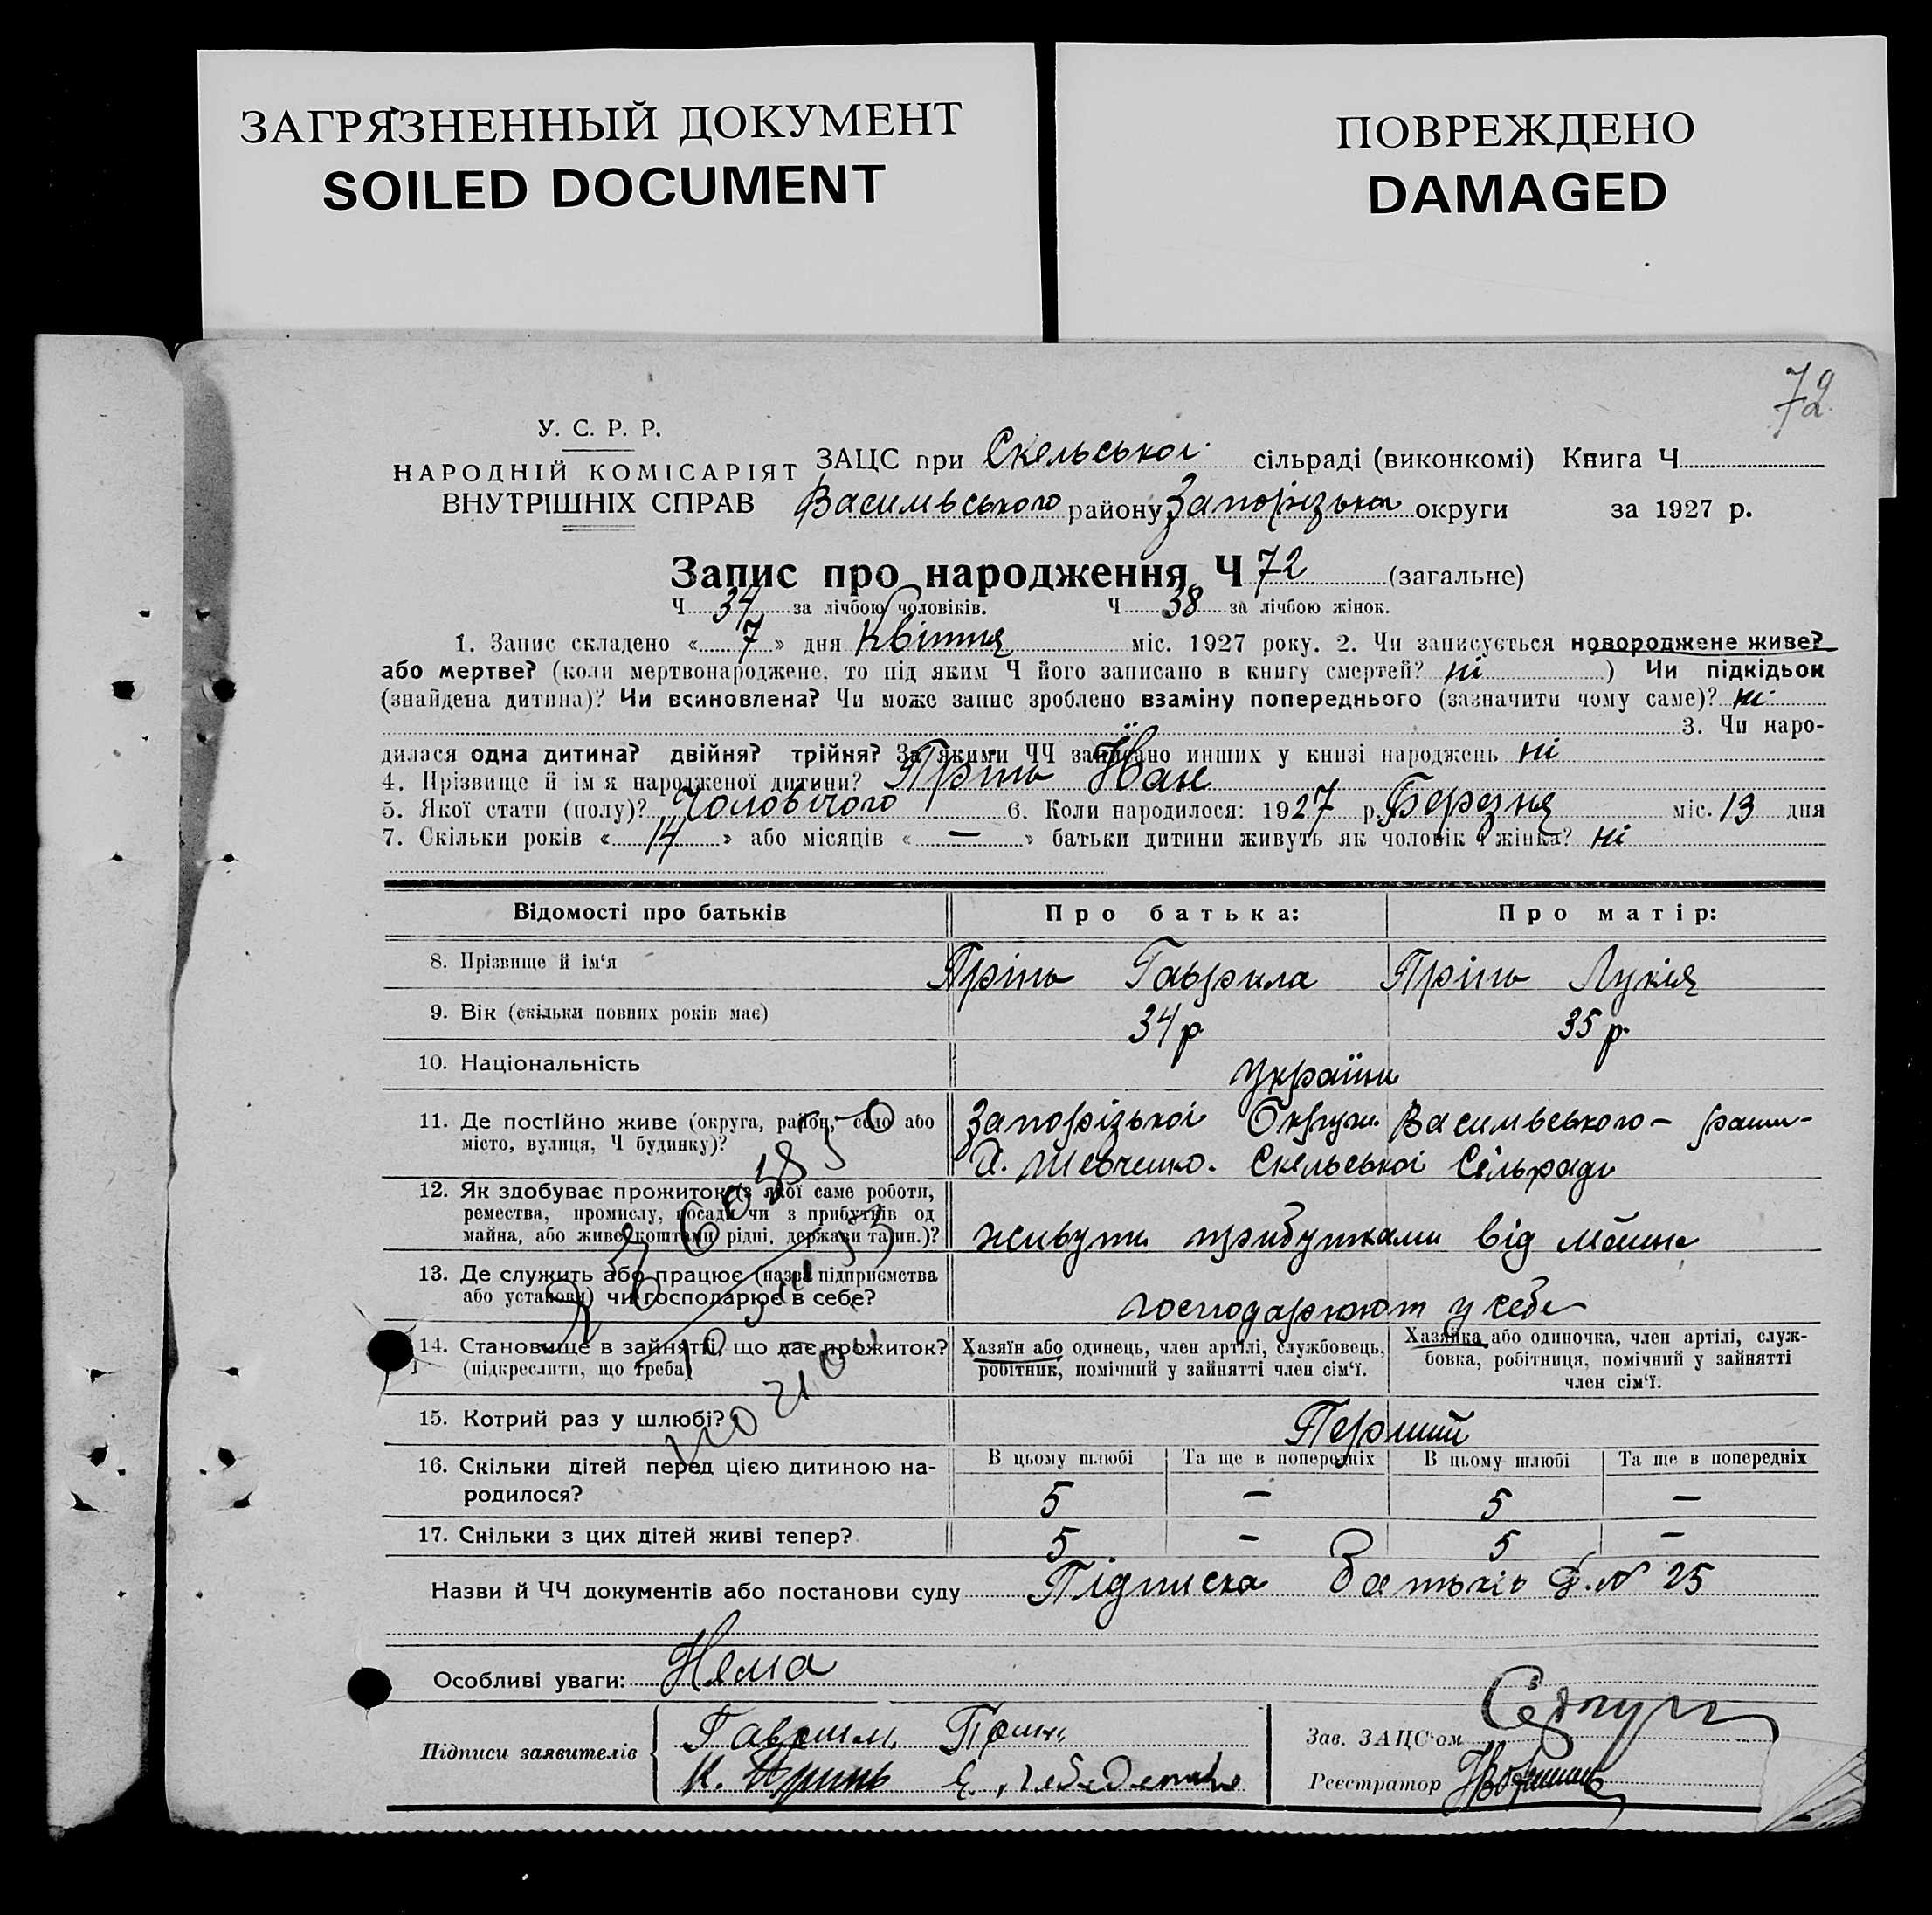 ЗАГРЯЗНЕННЫЙ ДОКУМЕНТ
SOILED DOCUMENT
ПОВРЕЖДЕНО
DAMAGED
72
У. С. Р. Р.
НАРОДНІЙ КОМІСАРІЯТ
ВНУТРІШНІХ СПРАВ
ЗАЦС при Скельської сільраді (виконкомі) Книга Ч
Васильвського району Запорізької округи за 1927 р.
Запис про народження Ч 72 (загальне)
Ч 34 за лічбою чоловіків. Ч 38 за лічбою жінок.
1. Запис складено « 7 » дня Квітня міс. 1927 року. 2. Чи записується новороджене живе?
або мертве? (коли мертвонароджене, то під яким Ч його записано в книгу смертей? ні ) Чи підкідьок
(знайдена дитина)? Чи всиновлена? Чи може запис зроблено взаміну попереднього (зазначити чому саме)? ні
3. Чи наро-
дилася одна дитина? двійня? трійня? За якими ЧЧ записано инших у книзі народжень ні
4. Прізвище й ім я народженої дитини? Прінь Іван
5. Якої стати (полу)? Чоловічого 6. Коли народилося: 1927 р. Березня міс. 13 дня
7. Скільки років « 14 » або місяців « — » батьки дитини живуть як чоловік і жінка? ні
Відомості про батьків Про батька: Про матір:
8. Прізвище й ім‘я Прінь Гаврила Прінь Лукія
9. Вік (скільки повних років має) 34 р 35 р.
10. Національність України
11. Де постійно живе (округа, район, село або
місто, вулиця, Ч будинку)?
Запорізької Округи Васильвського –
Х. Шевченко. Скельської Сільради
12. Як здобуває прожиток (з якої саме роботи,
ремества, промислу, посади чи з прибутків од
майна, або живе коштами рідні, держави та ин.)?
живути прибутками від майна
13. Де служить або працює (назва підприємства
або установи) чи господарює в себе?
господарюют у себе
14. Становище в зайнятті, що дає прожиток?
(підкреслити, що треба)
Хазяїн або одинець, член артілі, службовець,
робітник, помічний у зайнятті член сім‘ї.
Хазяйка або одиночка, член артілі, служ-
бовка, робітниця, помічний у зайнятті
член сім‘ї.
15. Котрий раз у шлюбі? Перший
16. Скільки дітей перед цією дитиною на-
родилося?
В цьому шлюбі Та ще в попередніх В цьому шлюбі Та ще в попередніх
5 — 5 —
17. Скільки з цих дітей живі тепер? 5 — 5 —
Назви й ЧЧ документів або постанови суду Підписка батьків № 25
Особливі уваги: Нема
Підписи заявителів
Зав. ЗАЦС‘ом
Реєстратор